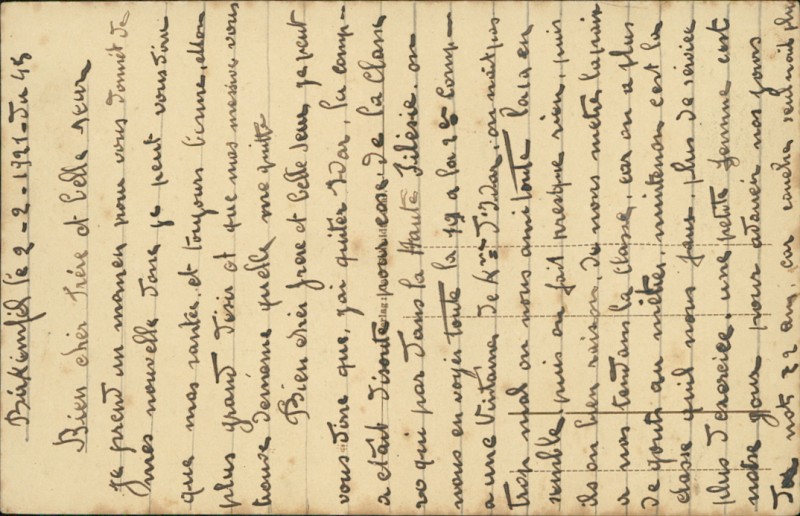 Birkenfeld le 2-2-1921-du 45
Bien cher frére et belle seur
je prend un momen pour vous donnét de
mes nouvelle donc je peut vous dire
que mas santer et toujours bonne, et mon
plus grand désir et que mes mesive vous
trouve deméme quelle me quitte
Bien cher frere et belle seur, je peut
vous dire que, j'ai quiter Idar, la comp-
a etait disoute pour cose, de la Classe
20 qui par dans la Haute Silésie. on
nous en voyer toute la 19 a la 2e Comp-
a une Vintaine de Kmes D'Idar, on nait pas
trop mal on nous ami toute la 19 en
semble, puis on fait presque rien, puis
ils on bien raison, de nous métre la pais
a nos tendans la Classe, car on a plus
de gouts au métier, maintenan cest la
classe quil nous faux, plus de service
plus d'exercice, une petite femme cest
notre gour pour adousir nos jours
De nots 22 ans, car coucher seul nait plus